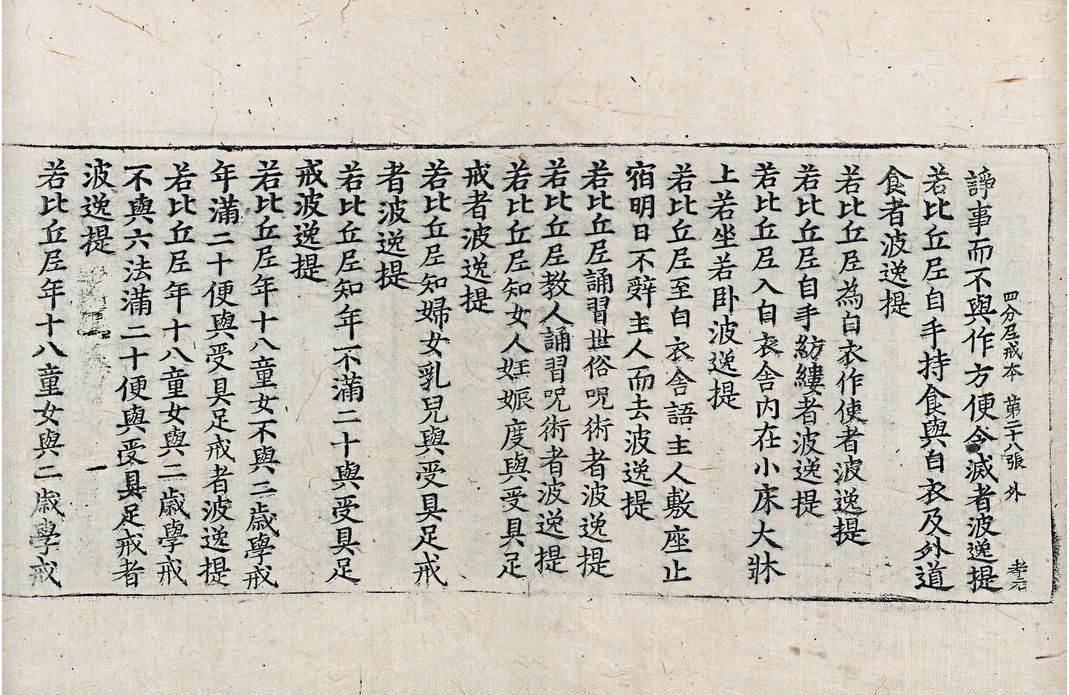 四分尼戒本 第二十八張 外 孝
諍事而不與作方便令滅者波逸提
若比丘尼自手持食與白衣及外道
食者波逸提
若比丘尼為白衣作使者波逸提
若比丘尼自手紡縷者波逸提
若比丘尼入白衣舍內在小床大牀
上若坐若卧波逸提
若比丘尼至白衣舍語主人敷座止
宿明日不辤主人而去波逸提
若比丘尼誦習世俗呪術者波逸提
若比丘尼教人誦習呪術者波逸提
若比丘尼知女人妊娠度與受具足
戒者波逸提
若比丘尼知婦女乳兒與受具足戒
者波逸提
若比丘尼知年不滿二十與受具足
戒波逸提
若比丘尼年十八童女不與二歲學戒
年滿二十便與受具足戒者波逸提
若比丘尼年十八童女與二歲學戒
不與六法滿二十便與受具足戒者
波逸提
若比丘尼年十八童女與二歲學戒